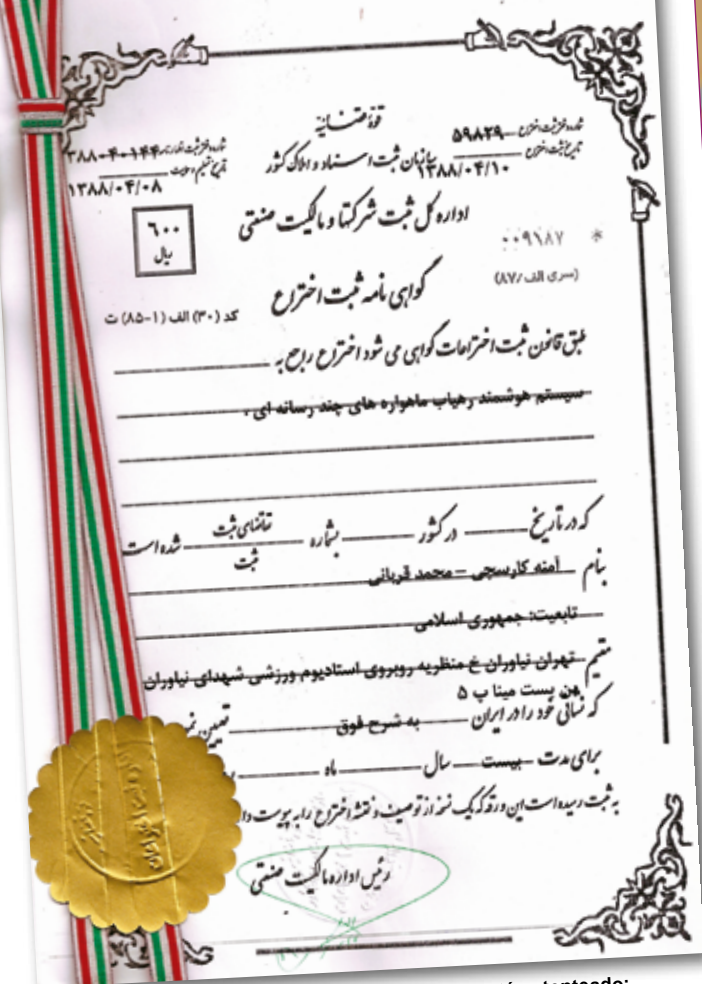 قوهٔ قضائیه
شماره دفتر ثبت اختراع ۵۹۸۲۹
تاریخ ثبت اختراع ۱۳۸۸/۰۴/۱۰
شماره دفتر ثبت اظهارنامه ۳۸۸۰۴۰۱۴۴
تاریخ تسلیم اظهارنامه ۱۳۸۸/۰۴/۰۸
سازمان ثبت اسناد و املاک کشور
اداره کل ثبت شرکتها و مالکیت صنعتی
۶۰۰
ریال
۰۰۹۱۸۷ *
(سری الف/۸۷)
گواهی نامه ثبت اختراع
کد (۳۰) الف (۱-۸۵) ت
طبق قانون ثبت اختراعات گواهی می شود اختراع راجع به
سیستم هوشمند رهیاب ماهواره های چند رسانه ای .
که در تاریخ در کشور بشماره تقاضای ثبت
ثبت شده است
بنام آمنه کارسجی – محمد قربانی
تابعیت: جمهوری اسلامی
مقیم تهران نیاوران خ منظریه روبروی استادیوم ورزشی شهدای نیاوران
بن بست مینا پ ۵
که نشانی خود را در ایران به شرح فوق تعیین
برای مدت بیست سال ماه
به ثبت رسیده است این ورقه که یک نسخه از توصیف و نقشه اختراع را به پیوست
رئیس اداره مالکیت صنعتی